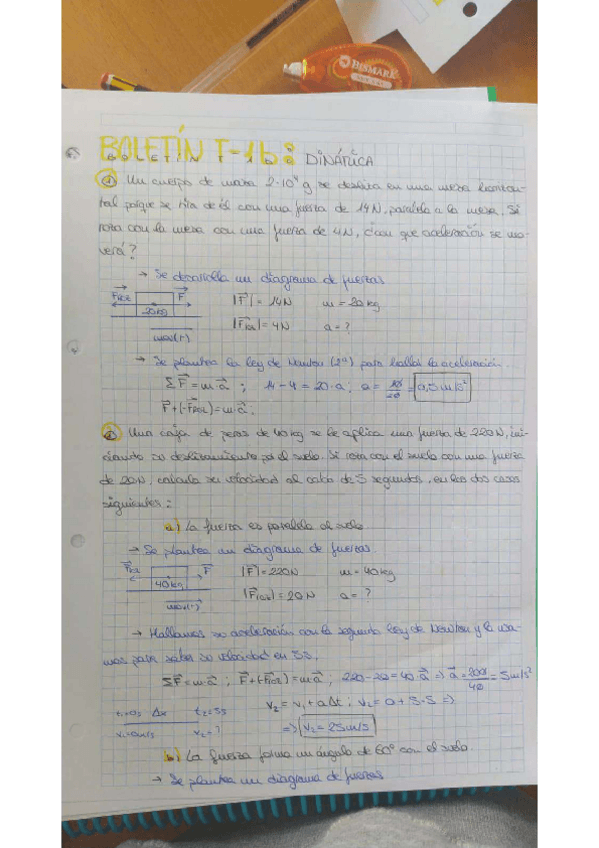 BISMARK
BOLETÍN T-1b: DINÁMICA
① Un cuerpo de masa 2·10⁴ g se desliza en una mesa horizon-
tal porque se tira de él con una fuerza de 14N, paralela a la mesa. Si
roza con la mesa con una fuerza de 4N, ¿con que aceleración se mo-
verá?
→ Se desarrolla un diagrama de fuerzas
Froz F |F| = 14N m = 20kg
20kg |Froz| = 4N a = ?
mov(+)
→ Se plantea la ley de Newton (2ª) para hallar la aceleración.
ΣF = m·a ; 14 - 4 = 20·a ; a = 10/20 = 0,5 m/s²
F + (-Froz) = m·a ;
② Una caja de peras de 40kg se le aplica una fuerza de 220N, ini-
ciando su deslizamiento por el suelo. Si roza con el suelo con una fuerza
de 20N, calcula su velocidad al cabo de 5 segundos, en los dos casos
siguientes:
a) La fuerza es paralela al suelo
→ Se plantea un diagrama de fuerzas.
Froz F |F| = 220N m = 40kg
40kg |Froz| = 20N a = ?
mov(+)
→ Hallamos su aceleración con la segunda ley de Newton y la usa-
mos para saber su velocidad en 5s.
ΣF = m·a ; F + (-Froz) = m·a ; 220 - 20 = 40·a ⇒ a = 200/40 = 5m/s²
t₁=0s Δx t₂=5s V₂ = V₁ + aΔt ; V₂ = 0 + 5·5 ⇒
V₁=0m/s V₂=? ⇒ V₂ = 25m/s
b) La fuerza forma un ángulo de 60° con el suelo.
→ Se plantea un diagrama de fuerzas